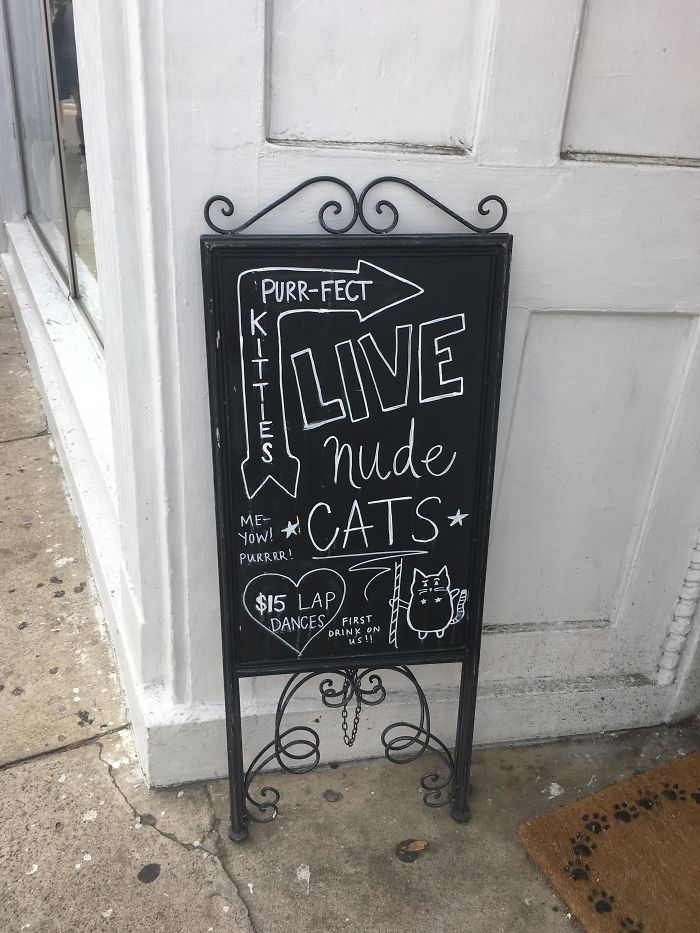 PURR-FECT
KITTIES
LIVE
nude
CATS
ME-
YOW!
PURRRR!
$15 LAP
DANCES
FIRST
DRINK ON
US!!